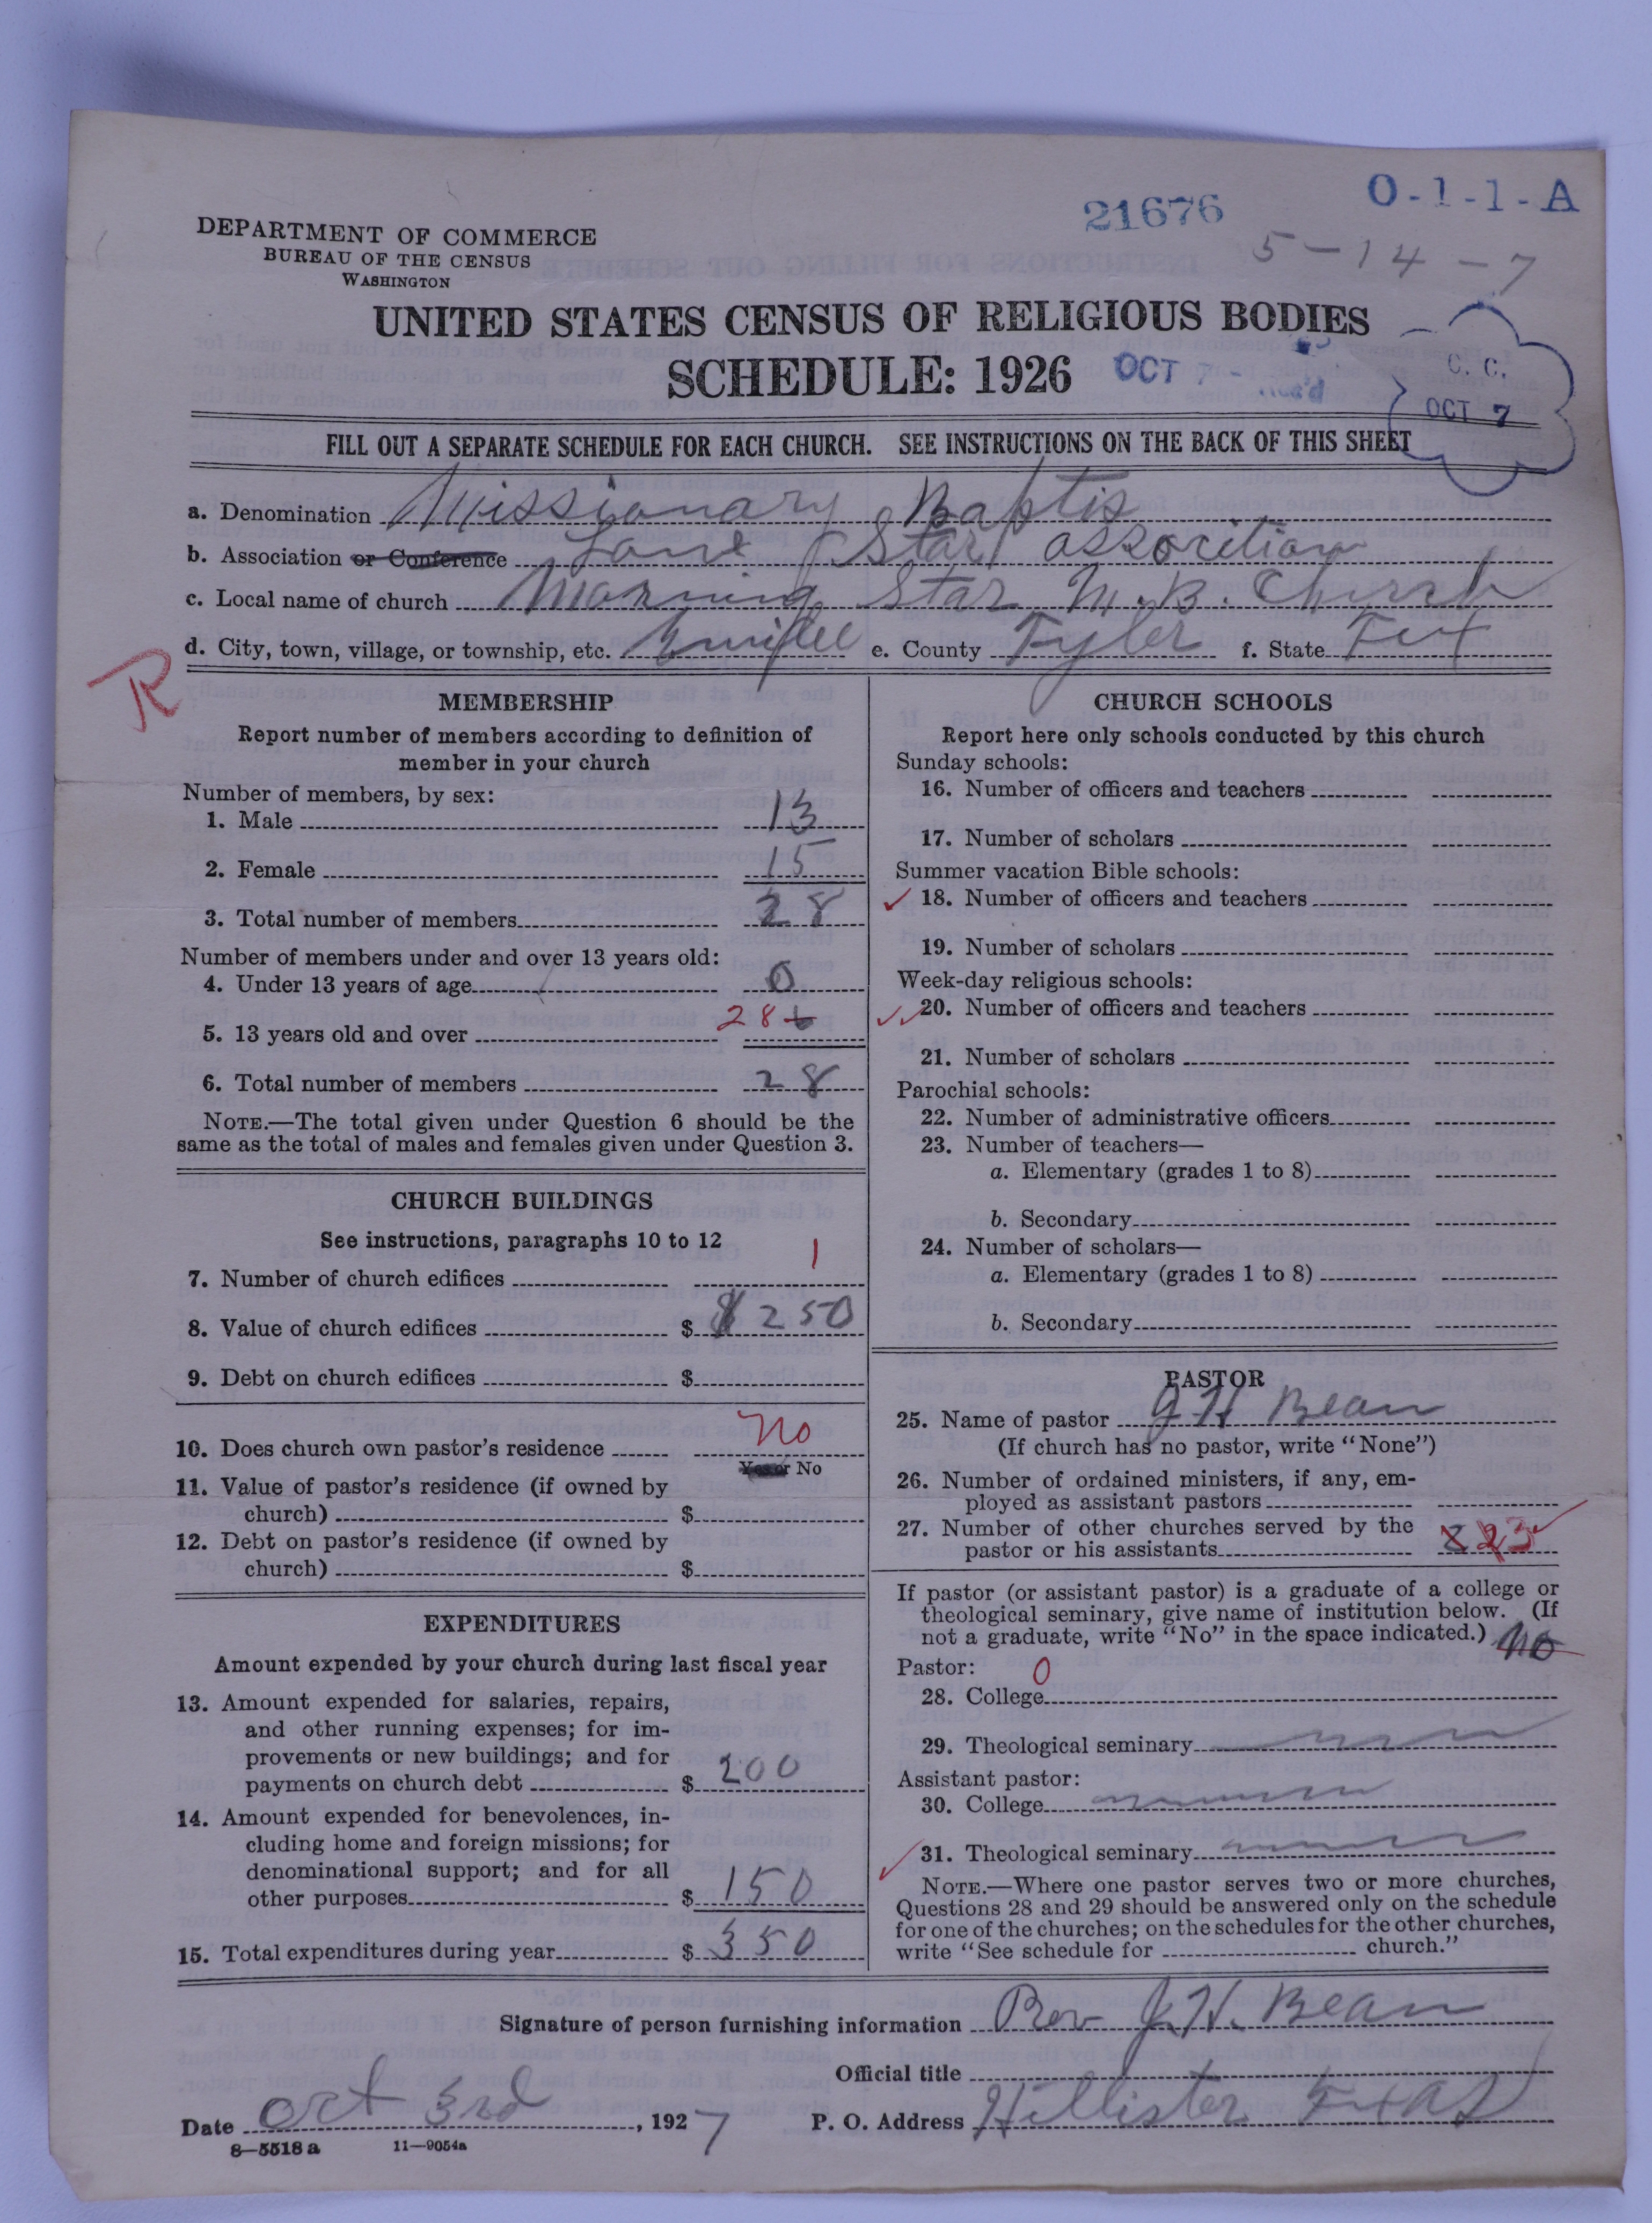 21676
O-1-1-A
5-14-7
DEPARTMENT OF COMMERCE
BUREAU OF THE CENSUS
WASHINGTON
UNITED STATES CENSUS OF RELIGIOUS BODIES
SCHEDULE: 1926
OCT 7 - Rec'd
C. C.
OCT 7
FILL OUT A SEPARATE SCHEDULE FOR EACH CHURCH. SEE INSTRUCTIONS ON THE BACK OF THIS SHEET
a. Denomination Missionary Baptis
b. Association or Conference Lone Star assorition
c. Local name of church Morning Star M. B. Church
d. City, town, village, or township, etc. e. County Tyler f. State Tex
R
MEMBERSHIP
Report number of members according to definition of
member in your church
Number of members, by sex:
1. Male 13
2. Female 15
3. Total number of members 28
Number of members under and over 13 years old:
4. Under 13 years of age 0
5. 13 years old and over 28
6. Total number of members 28
NOTE.—The total given under Question 6 should be the
same as the total of males and females given under Question 3.
CHURCH BUILDINGS
See instructions, paragraphs 10 to 12
7. Number of church edifices 1
8. Value of church edifices $ $250
9. Debt on church edifices $
10. Does church own pastor's residence No
Yes or No
11. Value of pastor's residence (if owned by
church) $
12. Debt on pastor's residence (if owned by
church) $
EXPENDITURES
Amount expended by your church during last fiscal year
13. Amount expended for salaries, repairs,
and other running expenses; for im-
provements or new buildings; and for
payments on church debt $ 200
14. Amount expended for benevolences, in-
cluding home and foreign missions; for
denominational support; and for all
other purposes $ 150
15. Total expenditures during year $ 350
CHURCH SCHOOLS
Report here only schools conducted by this church
Sunday schools:
16. Number of officers and teachers
17. Number of scholars
Summer vacation Bible schools:
18. Number of officers and teachers
19. Number of scholars
Week-day religious schools:
20. Number of officers and teachers
21. Number of scholars
Parochial schools:
22. Number of administrative officers
23. Number of teachers—
a. Elementary (grades 1 to 8)
b. Secondary
24. Number of scholars—
a. Elementary (grades 1 to 8)
b. Secondary
PASTOR
25. Name of pastor J H Bean
(If church has no pastor, write "None")
26. Number of ordained ministers, if any, em-
ployed as assistant pastors
27. Number of other churches served by the
pastor or his assistants 3
If pastor (or assistant pastor) is a graduate of a college or
theological seminary, give name of institution below. (If
not a graduate, write "No" in the space indicated.) No
Pastor: 0
28. College
29. Theological seminary
Assistant pastor:
30. College
31. Theological seminary
NOTE.—Where one pastor serves two or more churches,
Questions 28 and 29 should be answered only on the schedule
for one of the churches; on the schedules for the other churches,
write "See schedule for church."
Signature of person furnishing information Rev J. H. Bean
Official title
Date Oct 3rd, 1927 P. O. Address Hillister Texas
8—5518 a 11—9054a